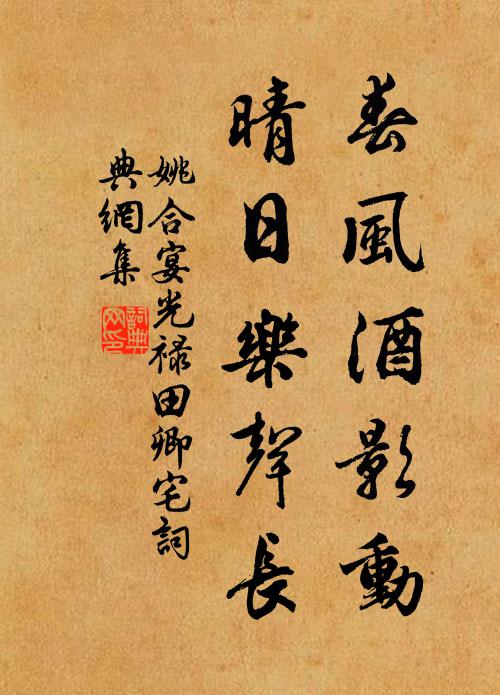 春風酒影動
晴日樂聲長
姚合宴光禄田卿宅詞
典網集
詞典網印